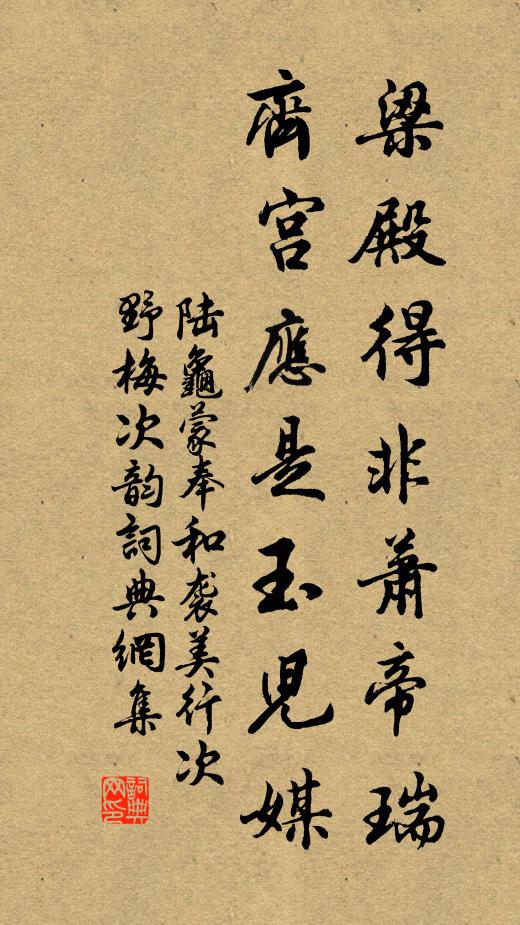 梁殿得非蕭帝瑞
齊宮應是玉兒媒
陆龜蒙奉和袭美行次
野梅次韵詞典網集
詞典网印